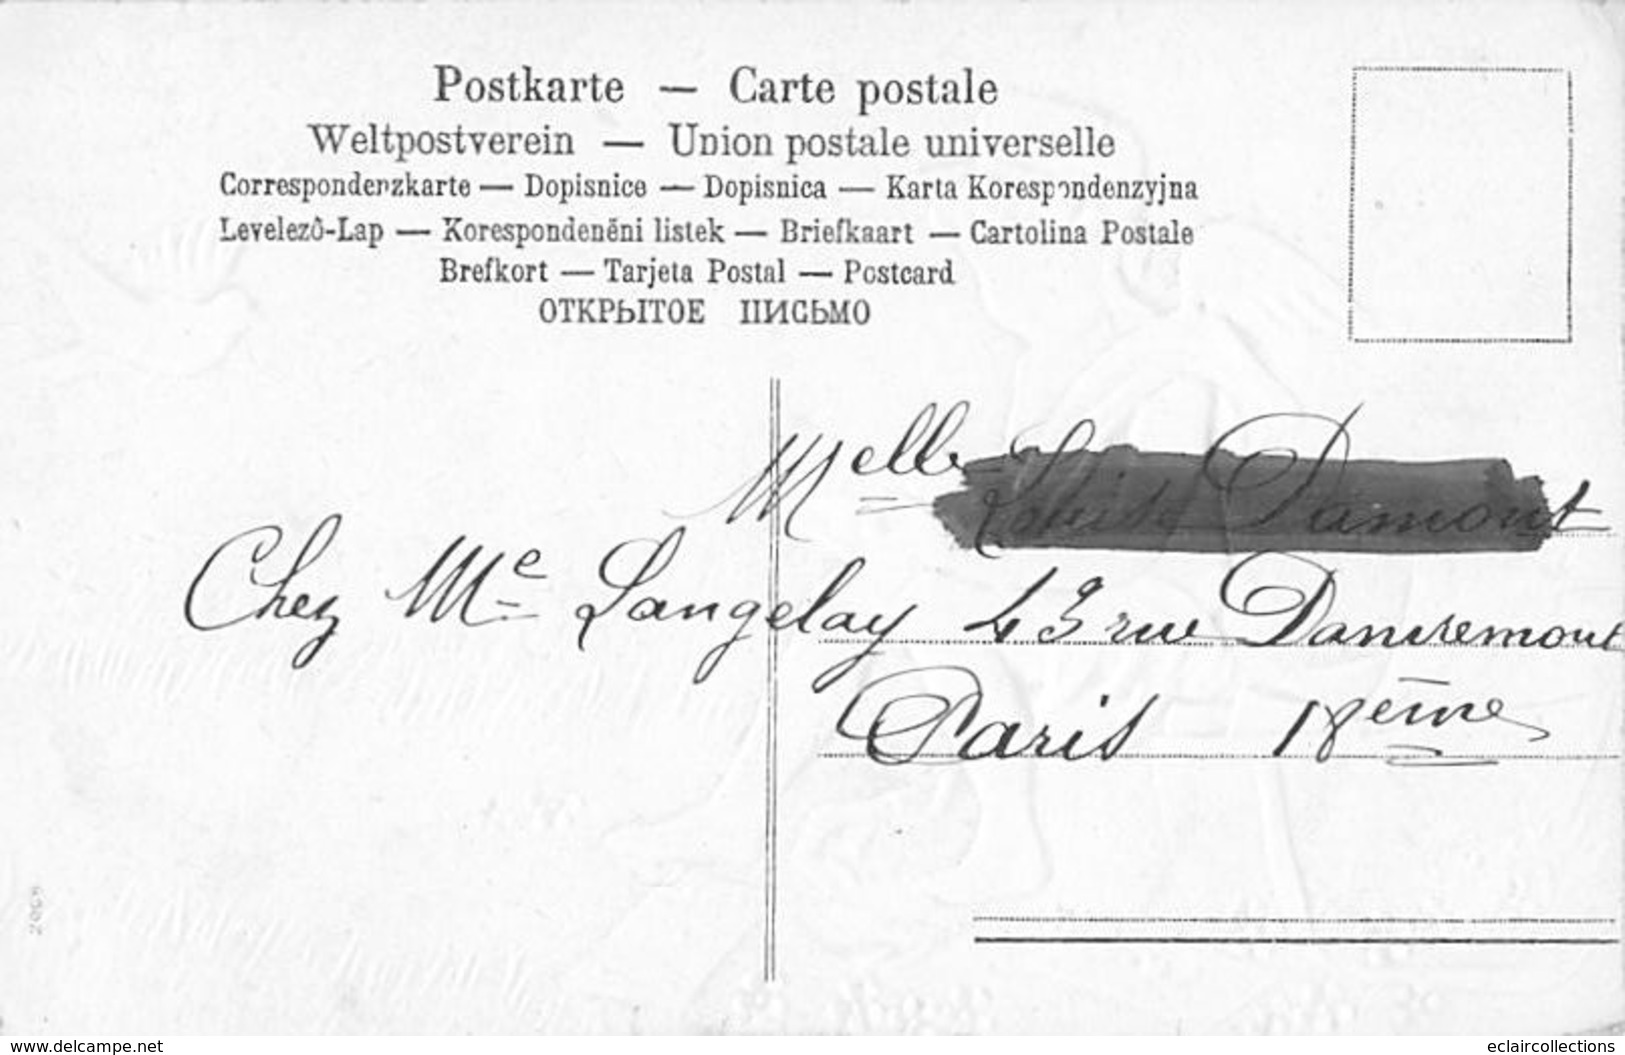 Postkarte — Carte postale
Weltpostverein — Union postale universelle
Correspondenzkarte — Dopisnice — Dopisnica — Karta Korespondenzyjna
Levelezô-Lap — Korespondenĕni listek — Briefkaart — Cartolina Postale
Brefkort — Tarjeta Postal — Postcard
ОТКРЫТОЕ ПИСЬМО
Melle Louise Damont
Chez Me Langelay 43 rue Damremont
Paris 18ème
delcampe.net
eclaircollections